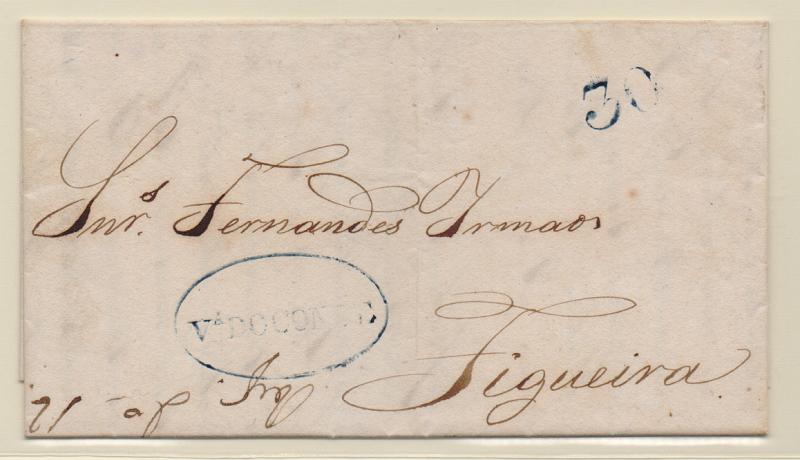 30
Snr.s Fernandes Irmaos
Va DO CONDE
Figueira